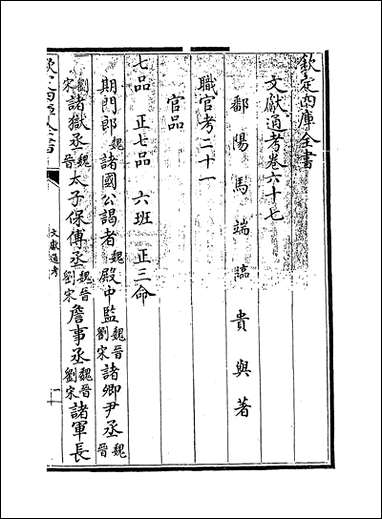 欽定四庫全書
文獻通考卷六十七
鄱陽馬端臨貴與著
職官考二十一
官品
七品 正七品 六班 正三命
期門郎魏諸國公謁者魏殿中監魏晉劉宋諸卿尹丞魏晉
劉宋諸獄丞魏晉太子保傅丞魏晉劉宋詹事丞魏晉劉宋諸軍長
欽定四庫全書
文獻通考
一